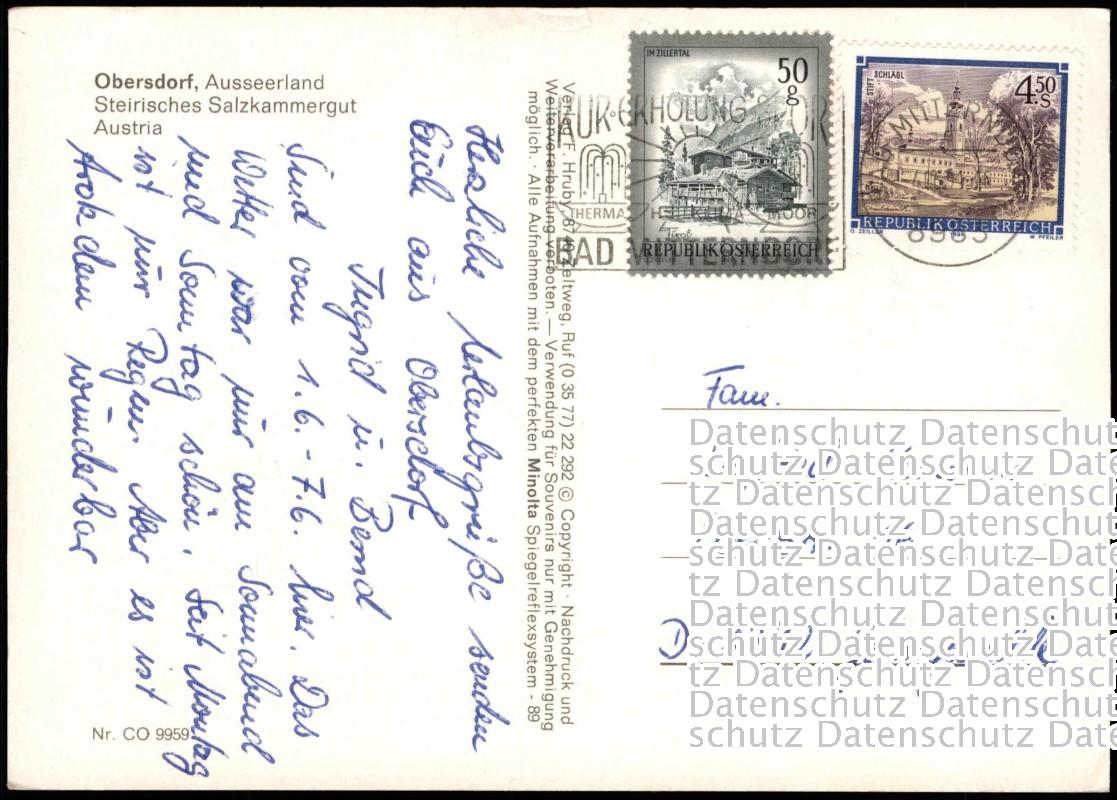 Obersdorf, Ausseerland
Steirisches Salzkammergut
Austria
Herzliche Urlaubsgrüße senden
Euch aus Obersdorf
Ingrid u. Bernd
Sind vom 1.6.-7.6. hier. Das
Wetter war nur am Sonnabend
und Sonntag schön. Seit Montag
ist nur Regen. Aber es ist
trotzdem wunderbar
Nr. CO 9959
Verlag F. Hruby, 8740 Zeltweg, Ruf (0 35 77) 22 292 © Copyright · Nachdruck und
Weiterverarbeitung verboten. — Verwendung für Souvenirs nur mit Genehmigung
möglich. · Alle Aufnahmen mit dem perfekten Minolta Spiegelreflexsystem - 89
IM ZILLERTAL
50
g
Tirol
REPUBLIK ÖSTERREICH
STIFT SCHLÄGL
4.50
S
REPUBLIK ÖSTERREICH
O. ZEILLER
W. PFEILER
KUR·ERHOLUNG
THERMA
MOOR
BAD
MITTERNDORF
8983
Fam.
Datenschutz Datenschut
schutz Datenschutz Dat
tz Datenschutz Datensc
Datenschutz Datenschut
schutz Datenschutz Dat
tz Datenschutz Datensc
Datenschutz Datenschut
schutz Datenschutz Dat
tz Datenschutz Datensc
Datenschutz Datenschut
schutz Datenschutz Dat